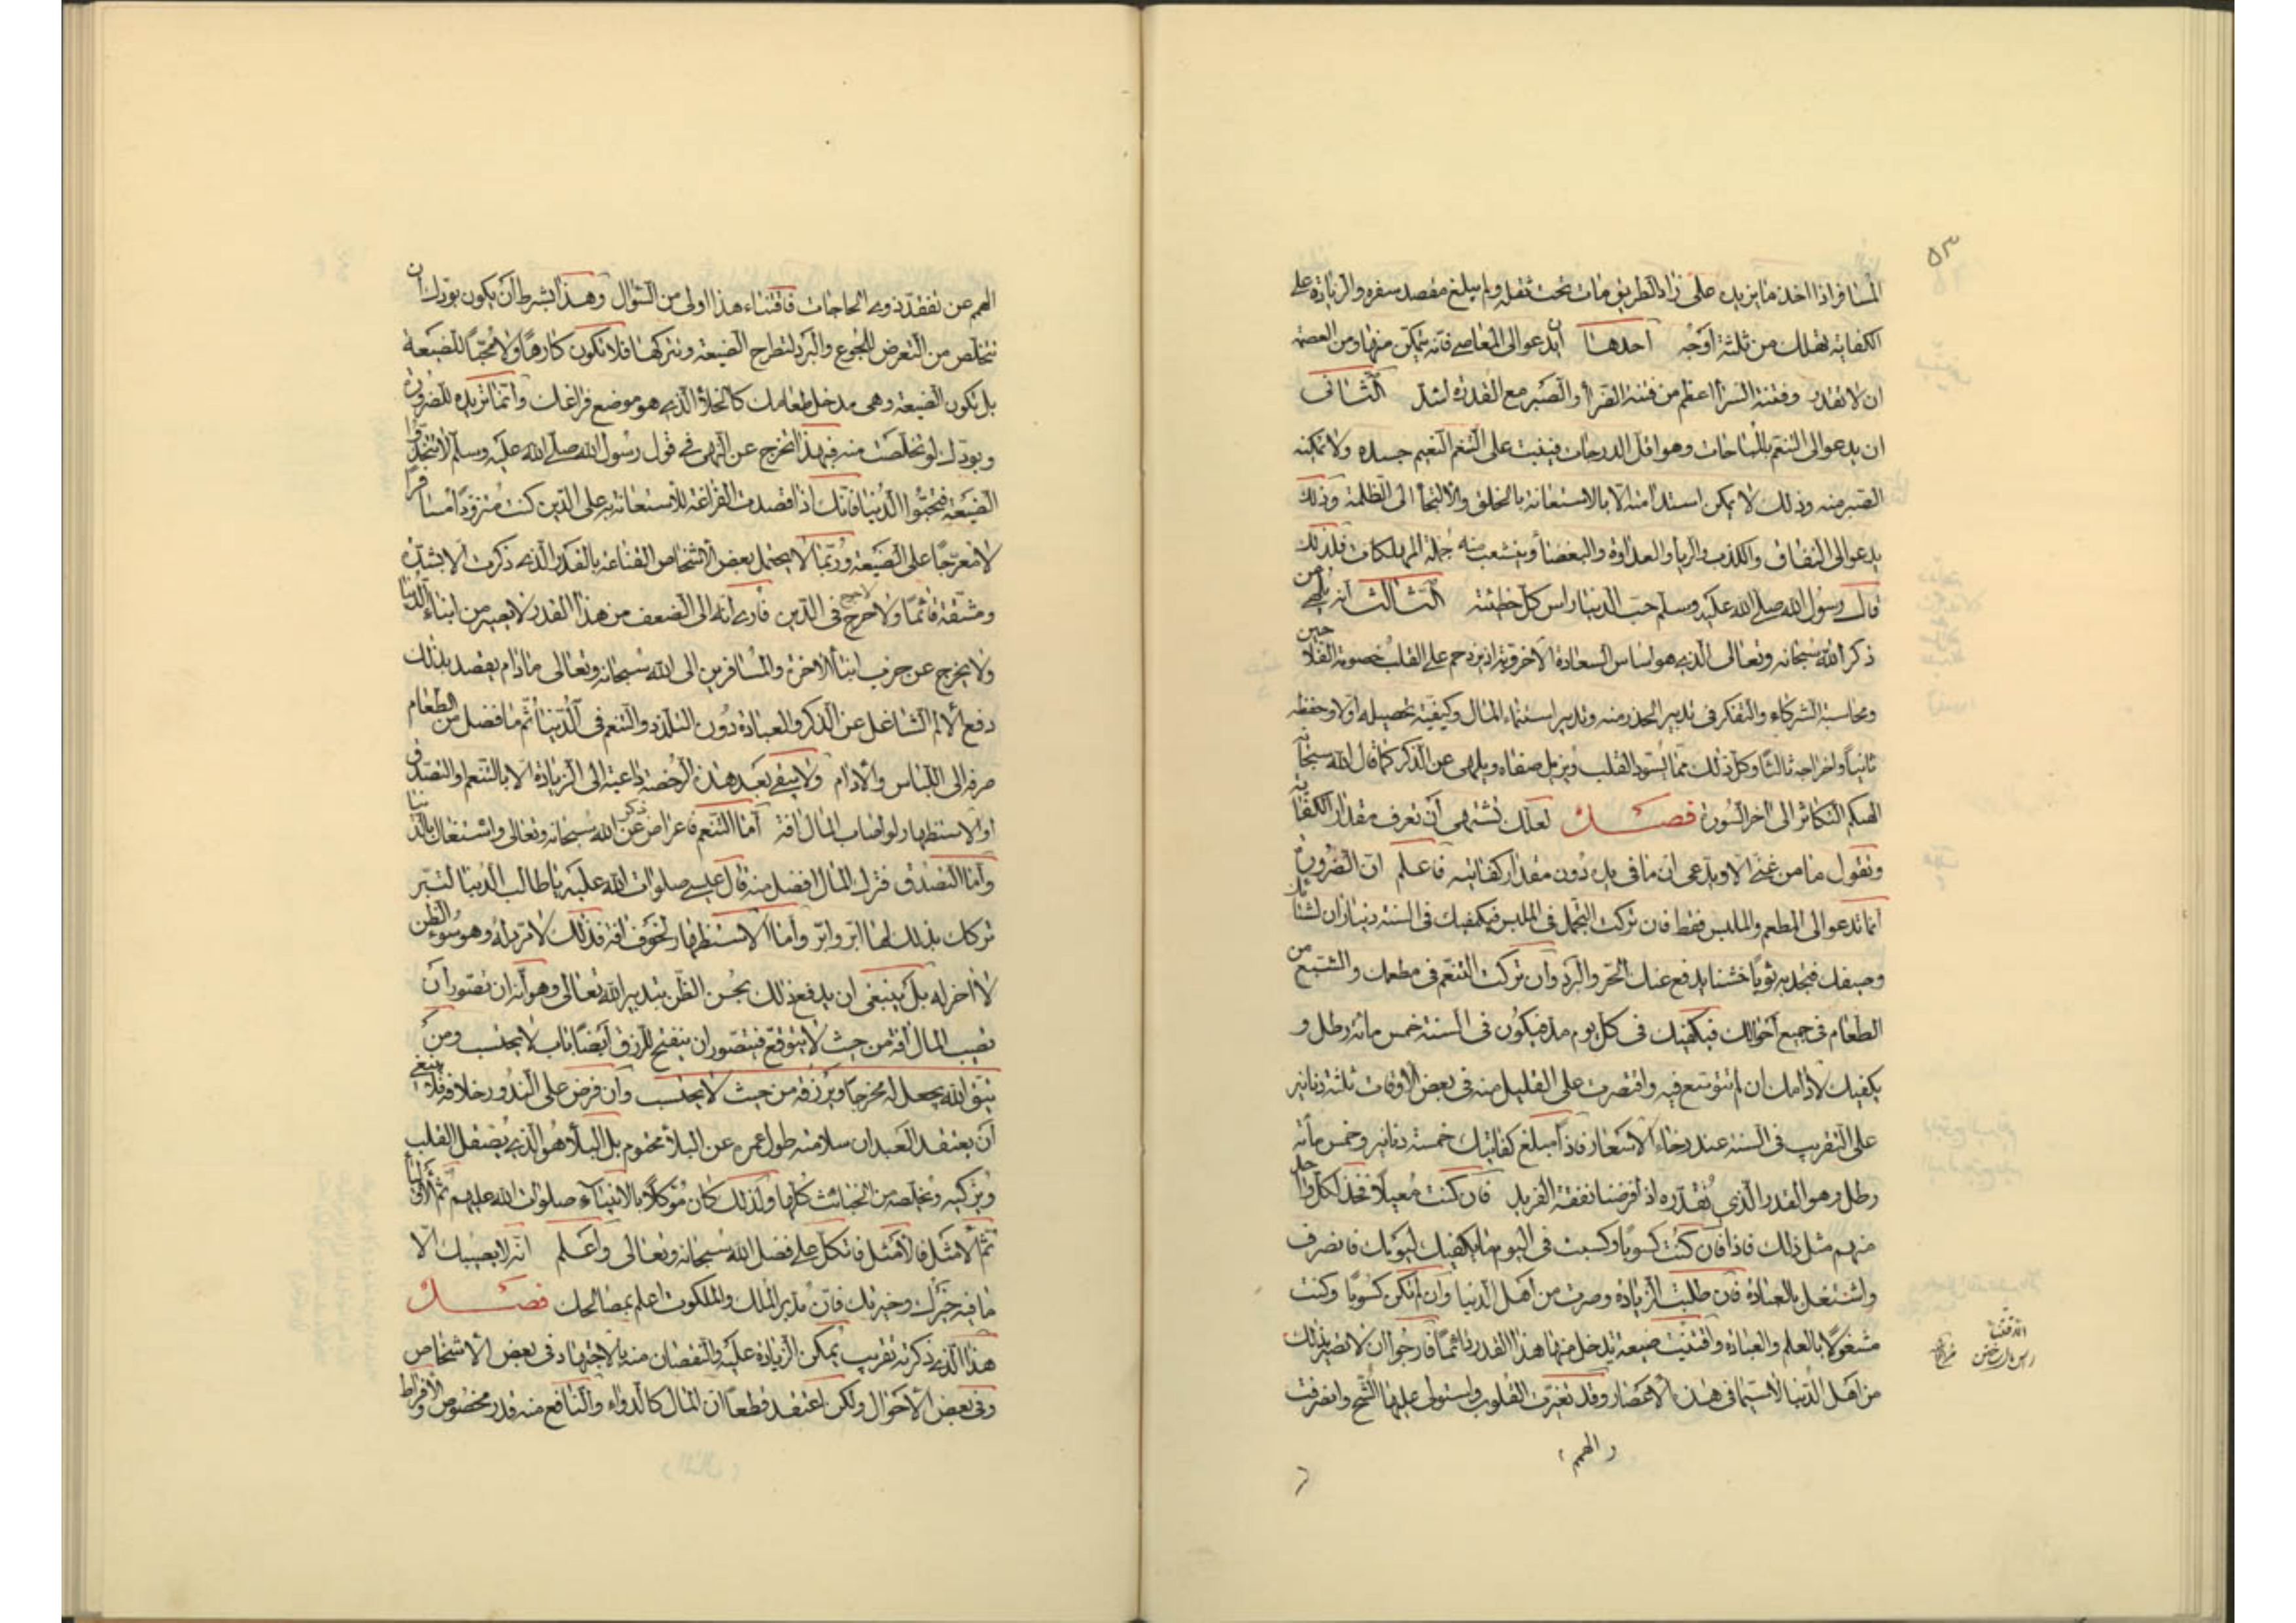 ٥٣
المسافر اذا اخذ ما يزيد على زاد الطريق مات تحت ثقله ولم يبلغ مقصد سفره والزيادة على
الكفاية تهلك من ثلثة اوجه احدها ان يدعو الى المعاصى فانه يتمكن منها ومن العصمة
ان لا تقدر وفتنة السرا اعظم من فتنة الضرا والصبر مع القدرة اشد الثانى
ان يدعو الى التنعم بالمباحات وهو اقل الدرجات فينبت على التنعم جسده ولا يمكنه
الصبر منه وذلك لا يمكن استدامته الا بالاستعانة بالخلق والالتجا الى الظلمة وذلك
يدعو الى النفاق والكذب والريا والعداوة والبغضا ويتشعب منه جملة المهلكات فلذلك
قال رسول الله صلى الله عليه وسلم حب الدنيا راس كل خطيئة الثالث انه يلهى عن
ذكر الله سبحانه وتعالى الذى هو اساس السعادة الاخروية اذ يزدحم على القلب خصومة الفلاحين
ومحاسبة الشركاء والتفكر فى تدبير الحذر منه وتدبير استنماء المال وكيفية تحصيله اولا وحفظه
ثانيا واخراجه ثالثا وكل ذلك مما يسود القلب ويزيل صفاه ويلهى عن الذكر كما قال الله سبحانه
الهيكم التكاثر الى اخر السورة فصل لعلك تشتهى ان تعرف مقدار الكفاية
وتقول ما من غنى الا ويدعى ان ما فى يده دون مقدار كفايته فاعلم ان الضرورة
انما تدعو الى المطعم والملبس فقط فان تركت التجمل فى الملبس فيكفيك فى السنة ديناران لشتائك
وصيفك فتجد به ثوبا خشنا يدفع عنك الحر والبرد وان تركت التنعم فى مطعمك والشبع من
الطعام فى جميع احوالك فيكفيك فى كل يوم مد فيكون فى السنة خمس مائة رطل و
يكفيك لادامك ان لم تتوسع فيه واقتصرت على القليل منه فى بعض الاوقات ثلثة دنانير
على التقريب فى السنة عند رخاء الاسعار فاذا مبلغ كفايتك خمسة دنانير وخمس مائة
رطل وهو القدر الذى نقدره اذا فرضنا نفقة الفريد فان كنت معيلا فخذ لكل واحد
منهم مثل ذلك فاذا فان كنت كسوبا وكسبت فى اليوم ما يكفيك ليومك فانصرف
واشتغل بالعبادة فان طلبت الزيادة وصرت من اهل الدنيا وان لم تكن كسوبا وكنت
مشغولا بالعلم والعبادة واقتنيت ضيعة يدخل منها هذا القدر دائما فارجوا ان لا تصير بذلك
من اهل الدنيا لا سيما فى هذه الاعصار وقد تغيرت القلوب واستولى عليها الشح وانصرفت
و الهمم
الهمم عن تفقد ذوى الحاجات فاقتناء هذا اولى من السؤال وهذا بشرط ان يكون بودك ان
تتخلص من التعرض للجوع والبرد لتطرح الضيعة وتتركها فلا تكون كارها ولا محبا للضيعة
بل تكون الضيعة وهى مدخل طعامك كالخلا الذى هو موضع فراغك وانما تريده للضرورة
وبودك لو تخلصت منه فبهذا تخرج عن النهى فى قول رسول الله صلى الله عليه وسلم لا تتخذوا
الضيعة فتحبوا الدنيا فانك اذا قصدت الفراغة للاستعانة به على الدين كنت متزودا مسافرا
لا معرجا على الضيعة وربما لا يحتمل بعض الاشخاص القناعة بالقدر الذى ذكرت الا بشدة
ومشقة دائما ولا حرج فى الدين فادى انه الى الضعف من هذا القدر لا يصير من ابناء الدنيا
ولا يخرج عن حزب ابنا الاخرة والمسافرين الى الله سبحانه وتعالى ما دام يقصد بذلك
دفع الالم الشاغل عن الذكر والعبادة دون التلذذ والتنعم فى الدنيا ثم ما فضل من الطعام
صرفه الى اللباس والادام ولا يبقى بعد هذه الرخصة داعية الى الزيادة الا بالتنعم والتصدق
او الاستظهار لو اصاب المال افة اما التنعم فاعراض عن ذكر الله سبحانه وتعالى واشتغال بالدنيا
واما التصدق فترك المال افضل منه قال عيسى صلوات الله عليه يا طالب الدنيا لتبر
تركك بذلك لها ابر وابر واما الاستظهار لخوف افة فذلك لا مرد له وهو سوء الظن
لا اخر له بل ينبغى ان يدفع ذلك بحسن الظن بتدبير الله تعالى وهو انه ان تصور ان
تصيب المال افة من حيث لا يتوقع فيتصور ان ينفتح للرزق ايضا باب لا يحتسب ومن
يتق الله يجعل له مخرجا ويرزقه من حيث لا يحتسب وان فرض على الندور خلافه فلا ينبغى
ان يعتقد العبد ان سلامته طول عمره عن البلا محتوم بل البلا هو الذى يصقل القلب
ويزكيه ويخلصه من الخبائث كلها ولذلك كان موكلا بالانبياء صلوات الله عليهم ثم الاوليا
ثم الامثل فالامثل فاتكل على فضل الله سبحانه وتعالى واعلم انه لا يصيبك الا
ما فيه خيرك وخيرتك فان مدبر الملك والملكوت اعلم بمصالحك فصل
هذا الذى ذكرته تقريب يمكن الزيادة عليه والنقصان منه بالاجتهاد فى بعض الاشخاص
وفى بعض الاحوال ولكن اعتقد قطعا ان المال كالدواء والنافع منه قدر مخصوص والافراط